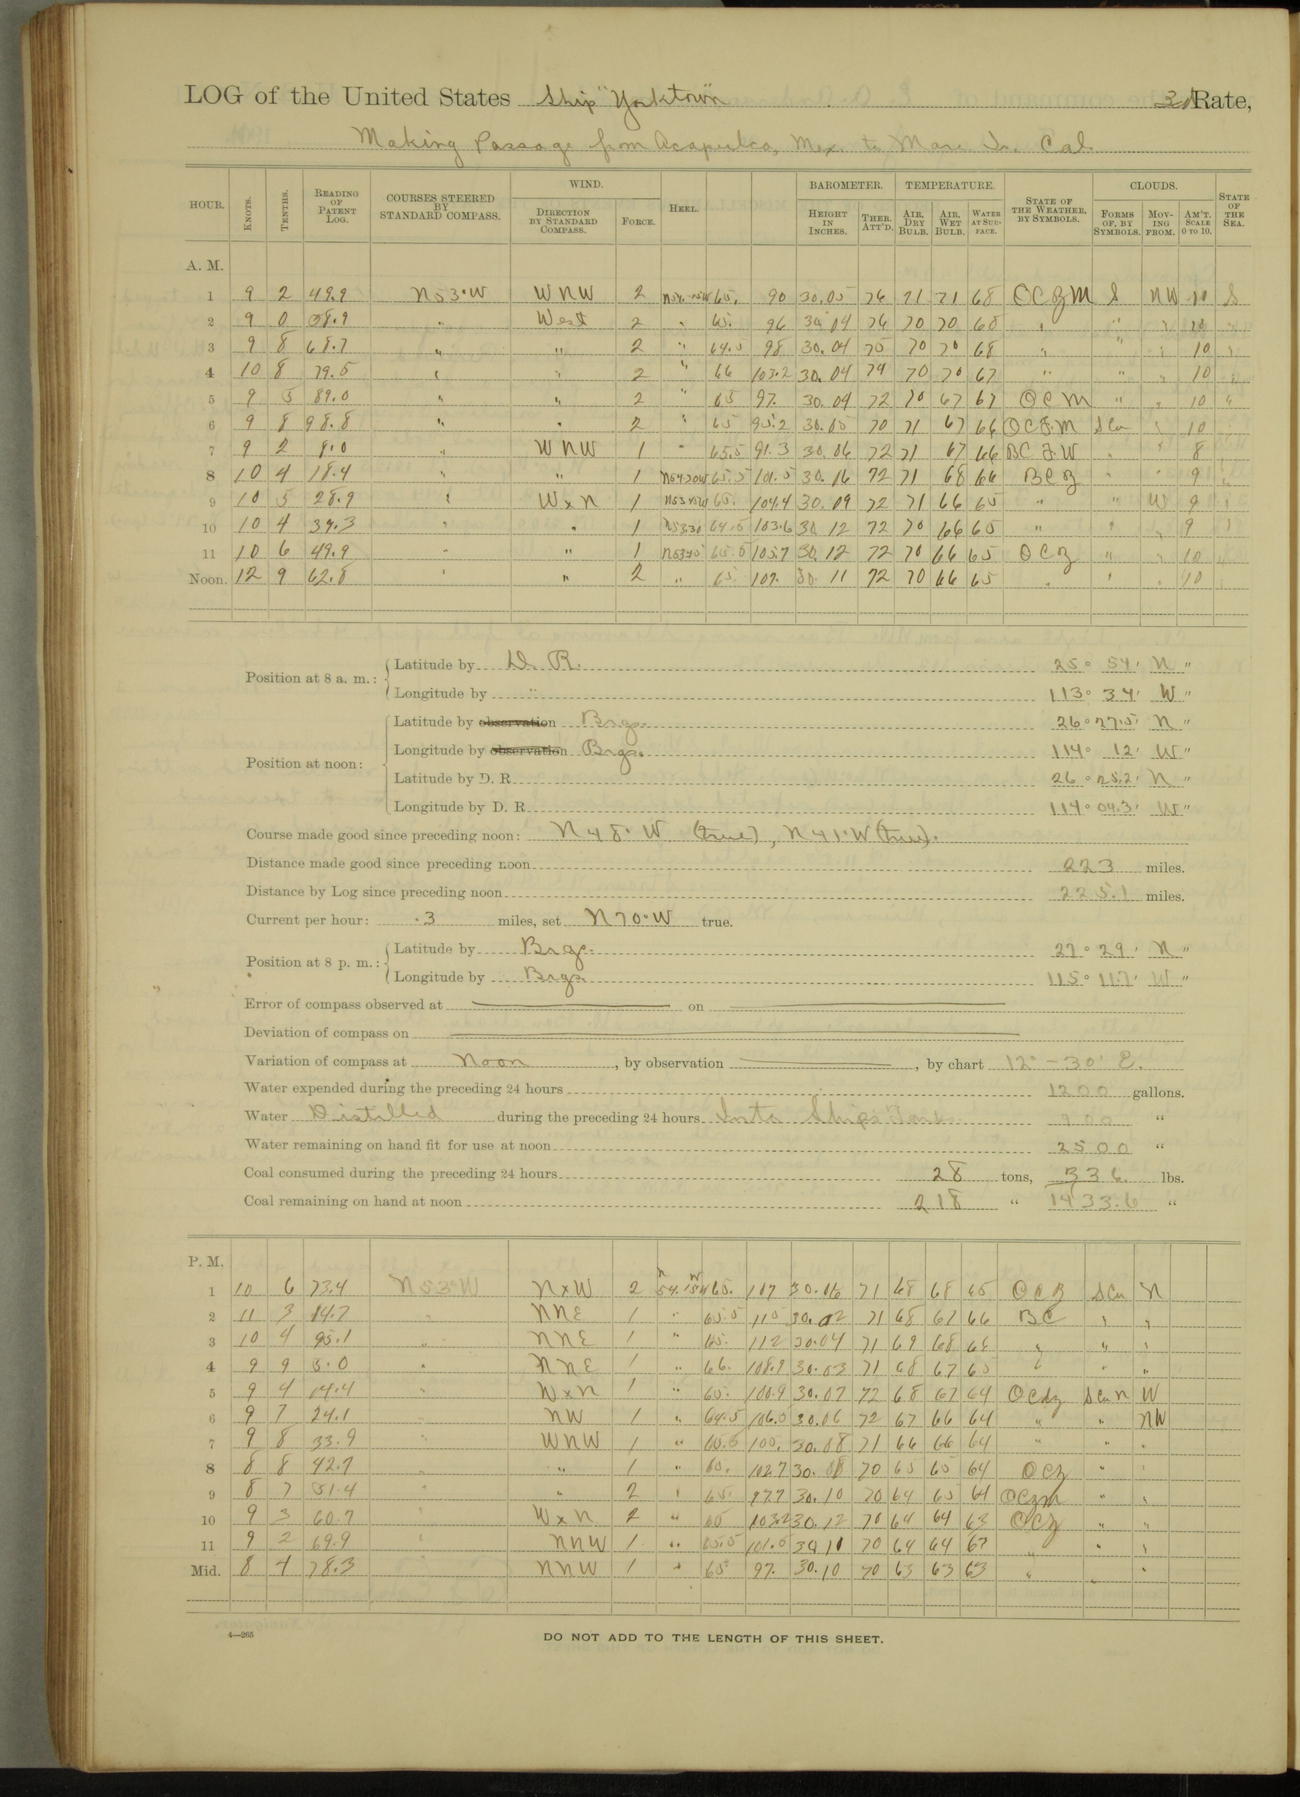 LOG of the United States Ship "Yorktown" 3d Rate,
Making Passage from Acapulco, Mex. to Mare Is. Cal.
HOUR. KNOTS. TENTHS. READING OF PATENT LOG. COURSES STEERED BY STANDARD COMPASS. WIND. DIRECTION BY STANDARD COMPASS. FORCE. HEEL. BAROMETER. HEIGHT IN INCHES. THER. ATT'D. TEMPERATURE. AIR, DRY BULB. AIR, WET BULB. WATER AT SURFACE. STATE OF THE WEATHER, BY SYMBOLS. CLOUDS. FORMS OF, BY SYMBOLS. MOVING FROM. AM'T. SCALE 0 TO 10. STATE OF THE SEA.
A. M.
1 9 2 49.9 N53°W WNW 2 65. 90 30.05 76 71 71 68 OCZM S NW 10 S
2 9 0 58.9 " West 2 " 65. 96 30.04 76 70 70 68 " " " 10 "
3 9 8 68.7 " " 2 " 64.5 98 30.04 75 70 70 68 " " " 10 "
4 10 8 79.5 " " 2 " 66 103.2 30.04 74 70 70 67 " " " 10 "
5 9 5 89.0 " " 2 " 65 97. 30.04 72 70 67 67 OCM " " 10 "
6 9 8 98.8 " " 2 " 65 95.2 30.05 70 71 67 66 OCZM SCu " 10
7 9 2 8.0 " WNW 1 " 65.5 91.3 30.06 72 71 67 66 " " 8
8 10 4 18.4 " " 1 65.5 101.5 30.06 72 71 68 66 BCZ " " 9
9 10 5 28.9 " WxN 1 65. 104.4 30.09 72 71 66 65 " " W 9
10 10 4 39.3 " " 1 64.5 103.6 30.12 72 70 66 65 " " " 9
11 10 6 49.9 " " 1 65.5 105.7 30.12 72 70 66 65 OCZ " " 10
Noon. 12 9 62.8 " " 2 " 65 107. 30.11 72 70 66 65 " " " 10
Position at 8 a. m.: Latitude by D. R. 25° 54' N "
Longitude by " 113° 34' W "
Position at noon: Latitude by observation Brgs. 26° 27.5' N "
Longitude by observation Brgs. 114° 12' W "
Latitude by D. R. 26° 25.2' N "
Longitude by D. R. 114° 04.3' W "
Course made good since preceding noon: N48°W (true), N41°W (true).
Distance made good since preceding noon 223 miles.
Distance by Log since preceding noon 225.1 miles.
Current per hour: .3 miles, set N70°W true.
Position at 8 p. m.: Latitude by Brgs. 27° 29' N "
Longitude by Brgs. 115° 11.7' W "
Error of compass observed at on
Deviation of compass on
Variation of compass at Noon, by observation , by chart 12°-30' E.
Water expended during the preceding 24 hours 1200 gallons.
Water Distilled during the preceding 24 hours Into Ships Tank 900 "
Water remaining on hand fit for use at noon 2500 "
Coal consumed during the preceding 24 hours 28 tons, 336 lbs.
Coal remaining on hand at noon 218 " 1433.6 "
P. M.
1 10 6 73.4 N53°W NxW 2 65. 107 30.06 71 68 68 65 OCZ SCu N
2 11 3 84.7 " NNE 1 " 65.5 115 30.02 71 68 67 66 BC " "
3 10 4 95.1 " NNE 1 " 65. 112 30.04 71 69 68 66 " " "
4 9 9 5.0 " NNE 1 " 66. 108.9 30.03 71 68 67 65 " " "
5 9 4 14.4 WxN 1 " 65. 100.9 30.07 72 68 67 64 SCuN W
6 9 7 24.1 " NW 1 " 64.5 106.5 30.06 72 67 66 64 " " NW
7 9 8 33.9 " WNW 1 " 65.5 105. 30.08 71 66 66 64 " " "
8 8 8 42.7 " " 1 " 65. 102.7 30.08 70 65 65 64 OCZ " "
9 8 7 51.4 " " 2 " 65. 97.7 30.10 70 64 65 64 OCZM " "
10 9 3 60.7 " WxN 2 " 65 103.2 30.12 70 64 64 63 OCZ " "
11 9 2 69.9 " NNW 1 " 65.5 101.5 30.10 70 64 64 67 " " "
Mid. 8 4 78.3 NNW 1 " 65 97. 30.10 70 63 63 63 " " "
4—265
DO NOT ADD TO THE LENGTH OF THIS SHEET.